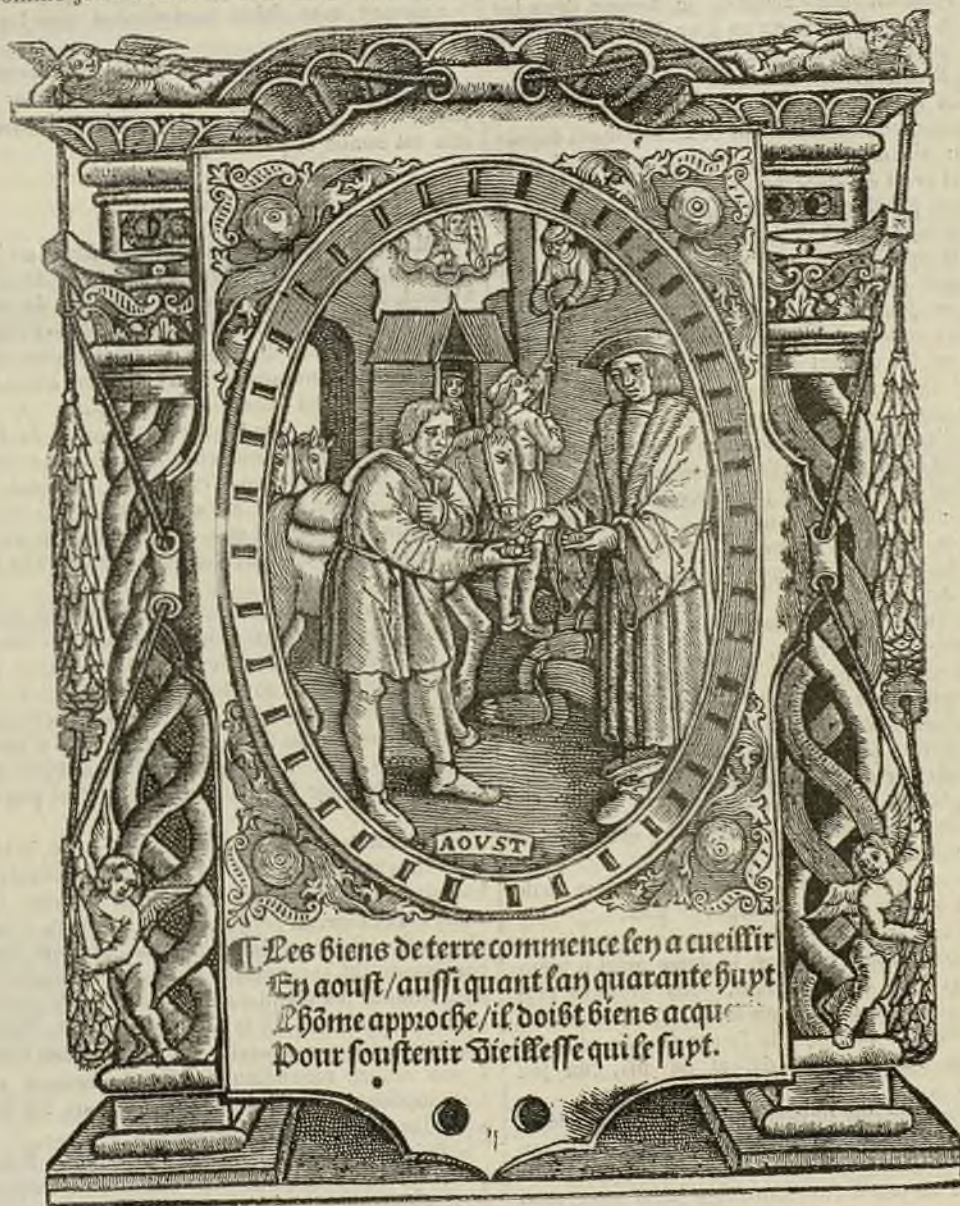 AOVST
¶ Les biens de terre commence len a cueillir
En aoust/aussi quant lan quarante huyt
Lhõme approche/il doibt biens
Pour soustenir vieillesse qui le suyt.